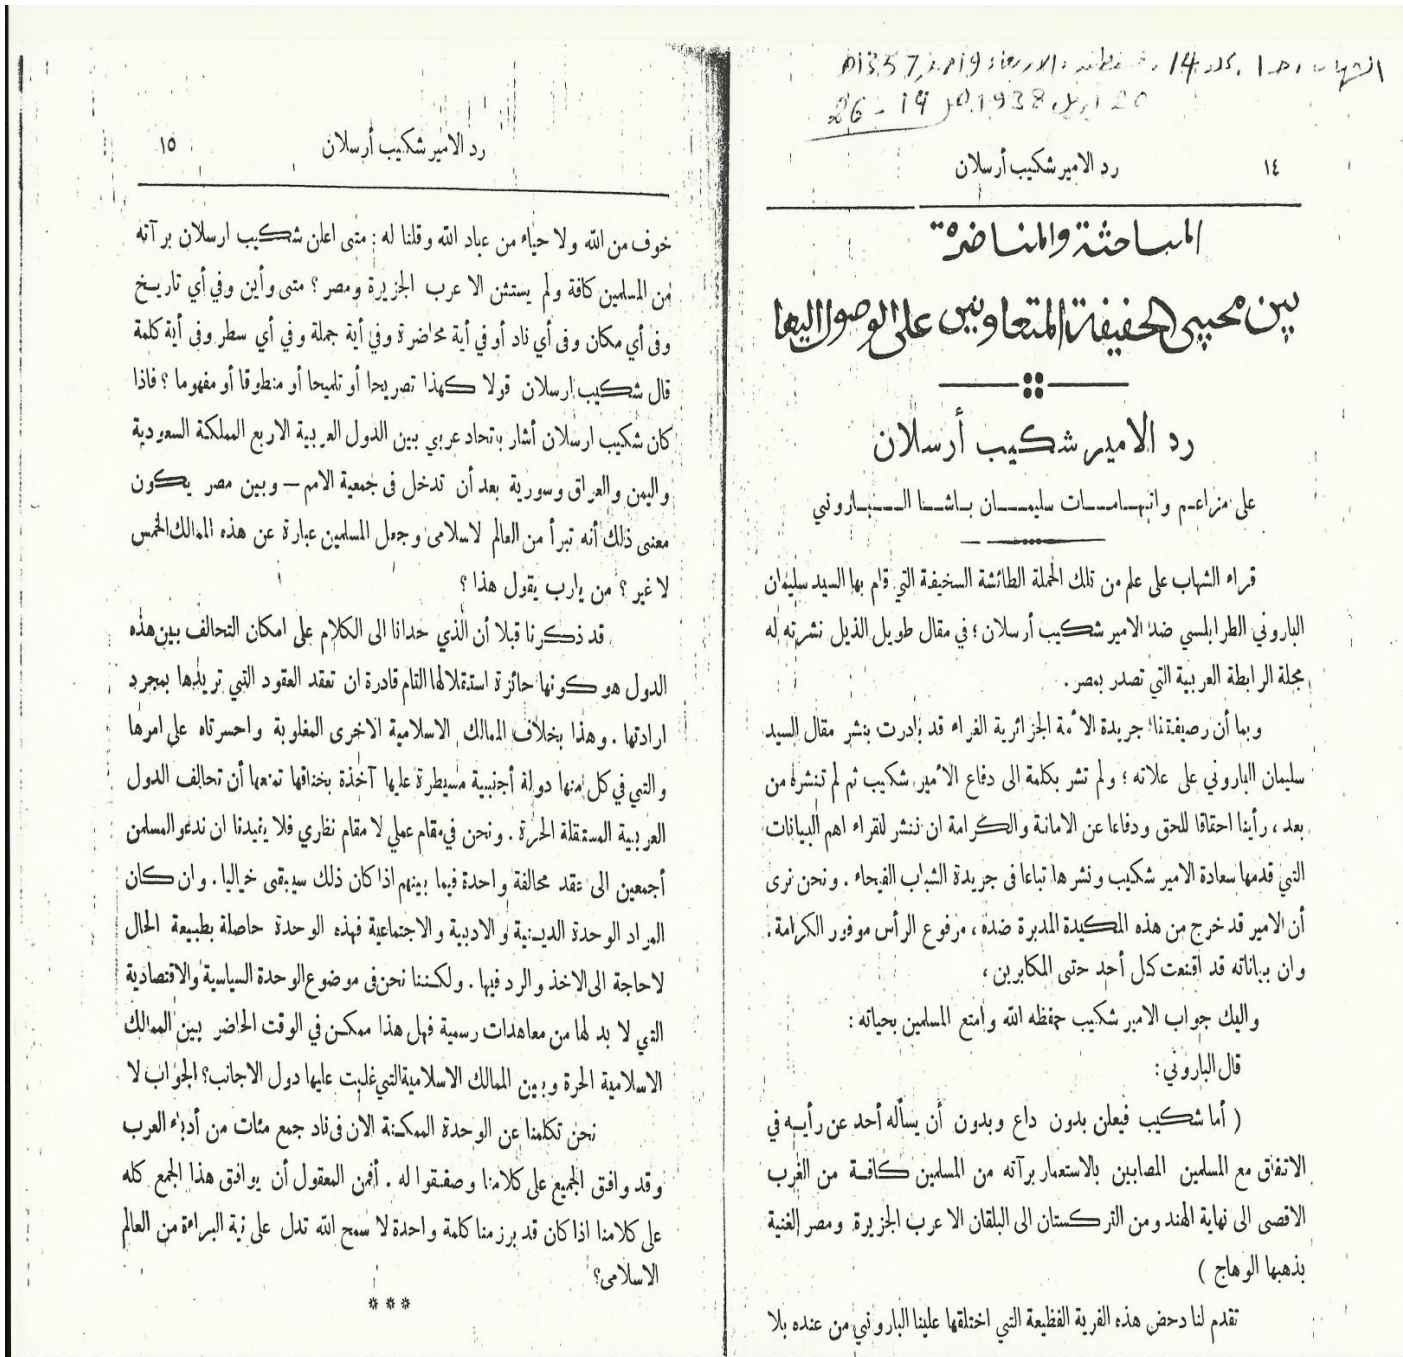 الشهاب، ج1 مجلد 14، قسنطينة، الاربعاء 19 صفر 1357ه
20 افريل 1938م ص 14 - 26
١٤
رد الامير شكيب أرسلان
المباحثة والمناضرة
بين محبي الحقيقة المتعاونين على الوصول اليها
رد الامير شكيب أرسلان
على مزاعم واتهامات سليمان باشا الباروني
قراء الشهاب على علم من تلك الحملة الطائشة السخيفة التي قام بها السيد سليمان
الباروني الطرابلسي ضد الامير شكيب أرسلان؛ في مقال طويل الذيل نشرته له
مجلة الرابطة العربية التي تصدر بمصر.
وبما أن رصيفتنا جريدة الأمة الجزائرية الغراء قد بادرت بنشر مقال السيد
سليمان الباروني على علاته؛ ولم تشر بكلمة الى دفاع الأمير شكيب ثم لم تنشره من
بعد، رأينا احقاقا للحق ودفاعا عن الامانة والكرامة ان ننشر للقراء اهم البيانات
التي قدمها سعادة الامير شكيب ونشرها تباعا فى جريدة الشباب الفيحاء. ونحن نرى
أن الامير قد خرج من هذه المكيدة المدبرة ضده، مرفوع الرأس موفور الكرامة.
وان بياناته قد أقنعت كل أحد حتى المكابرين،
واليك جواب الامير شكيب حفظه الله وامتع المسلمين بحياته:
قال الباروني:
( أما شكيب فيعلن بدون داع وبدون أن يسأله أحد عن رأيه في
الاتفاق مع المسلمين المصابين بالاستعمار برآته من المسلمين كافة من الغرب
الاقصى الى نهاية الهند ومن التركستان الى البلقان الا عرب الجزيرة ومصر الغنية
بذهبها الوهاج )
تقدم لنا دحض هذه الفرية الفظيعة التي اختلقها علينا الباروني من عنده بلا
رد الامير شكيب أرسلان
١٥
خوف من الله ولا حياء من عباد الله وقلنا له: متى اعلن شكيب ارسلان برآته
من المسلمين كافة ولم يستثن الا عرب الجزيرة ومصر؟ متى وأين وفي أي تاريخ
وفى أي مكان وفى أي ناد أو في أية محاضرة وفي أية جملة وفي أي سطر وفى أية كلمة
قال شكيب ارسلان قولا كهذا تصريحا أو تلميحا أو منطوقا أو مفهوما؟ فاذا
كان شكيب ارسلان أشار باتحاد عربي بين الدول العربية الاربع المملكة السعودية
واليمن والعراق وسورية بعد أن تدخل فى جمعية الامم — وبين مصر يكون
معنى ذلك أنه تبرأ من العالم لاسلامى وجعل المسلمين عبارة عن هذه الممالك الخمس
لاغير؟ من يارب يقول هذا؟
قد ذكرنا قبلا أن الذي حدانا الى الكلام على امكان التحالف بين هذه
الدول هو كونها حائزة استقلالها التام قادرة ان تعقد العقود التي تريدها بمجرد
ارادتها. وهذا بخلاف الممالك الاسلامية الاخرى المغلوبة واحسرتاه على امرها
والتي في كل منها دولة أجنبية مسيطرة عليها آخذة بخناقها تمنعها أن تحالف الدول
العربية المستقلة الحرة. ونحن في مقام عملي لا مقام نظاري فلا يفيدنا ان ندعو المسلمن
أجمعين الى عقد محالفة واحدة فيما بينهم اذا كان ذلك سيبقى خياليا. وان كان
المراد الوحدة الدينية والادبية والاجتماعية فهذه الوحدة حاصلة بطبيعة الحال
لاحاجة الى الاخذ والرد فيها. ولكننا نحن فى موضوع الوحدة السياسية والاقتصادية
التي لا بد لها من معاهدات رسمية فهل هذا ممكن في الوقت الحاضر بين الممالك
الاسلامية الحرة وبين الممالك الاسلامية التي غلبت عليها دول الاجانب؟ الجواب لا
نحن تكلمنا عن الوحدة الممكنة الان فى ناد جمع مئات من أدباء العرب
وقد وافق الجميع على كلامنا وصفقوا له. أفمن المعقول أن يوافق هذا الجمع كله
على كلامنا اذا كان قد برز منا كلمة واحدة لا سمح الله تدل على نية البراءة من العالم
الاسلامى؟
***